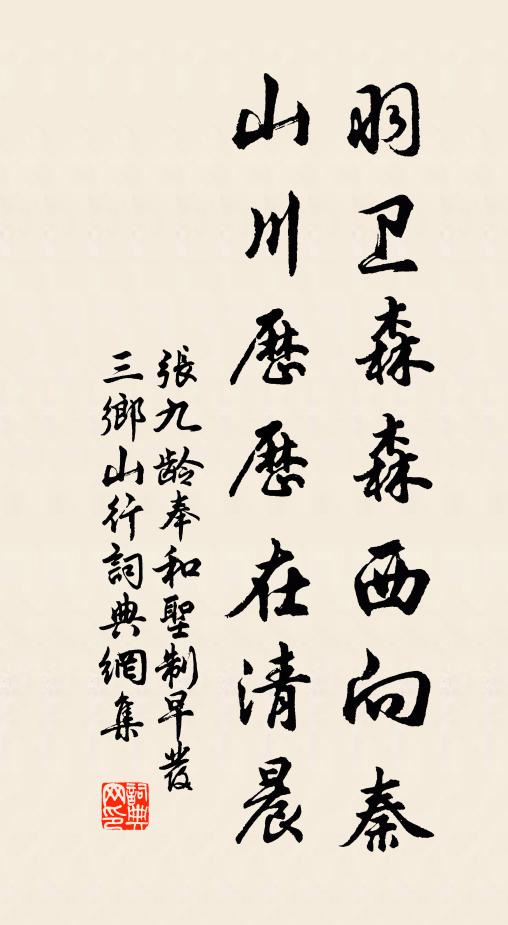 羽卫森森西向秦
山川歷歷在清晨
張九龄奉和聖制早發
三鄉山行詞典網集
詞典网印